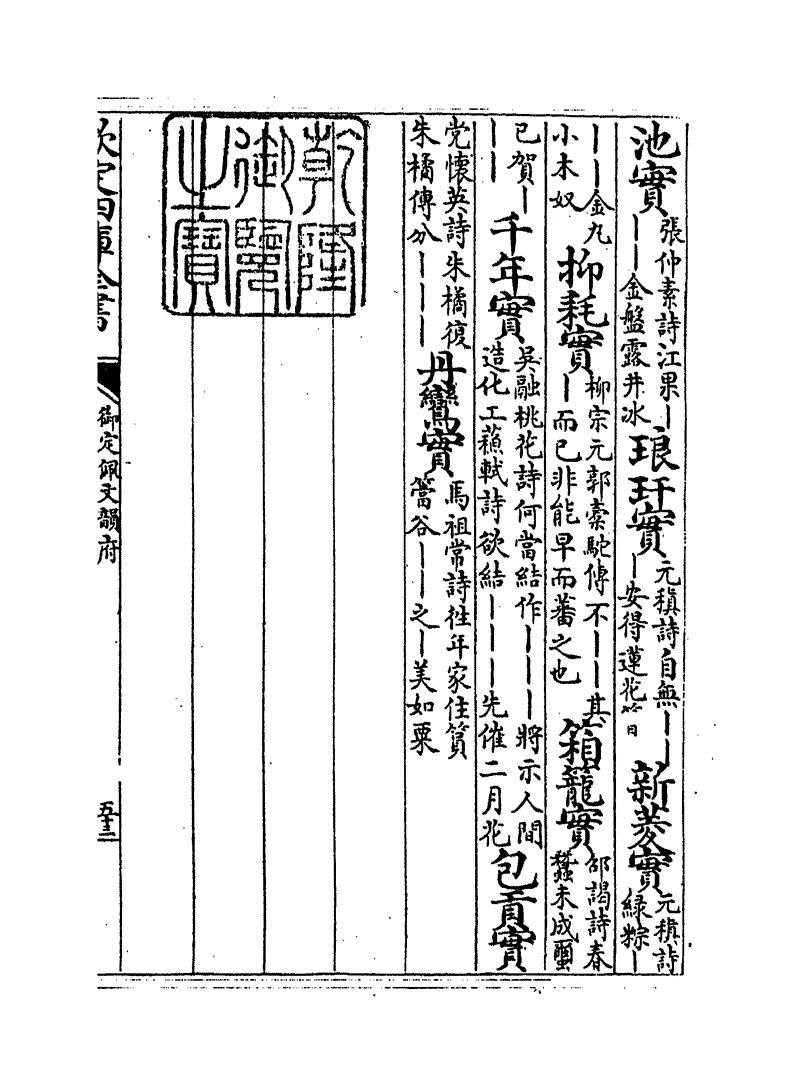 池實張仲素詩江果丨丨丨金盤露井冰琅玕實元稹詩自無丨丨丨安得蓮花簪日新菱實元稹詩綠粽丨
丨丨金丸小木奴抑耗實柳宗元郭橐駝傳不丨丨其丨而已非能早而蕃之也箱籠實邵謁詩春蠶未成繭
已賀丨丨丨千年實吳融桃花詩何當結作丨丨丨將示人間造化工蘇軾詩欲結丨丨丨先催二月花包貢實
党懷英詩朱橘復朱橘傳分丨丨丨丹鸞實馬祖常詩往年家住篔簹谷丨丨之丨美如粟
乾隆御覽之寶
欽定四庫全書
御定佩文韻府
五十三